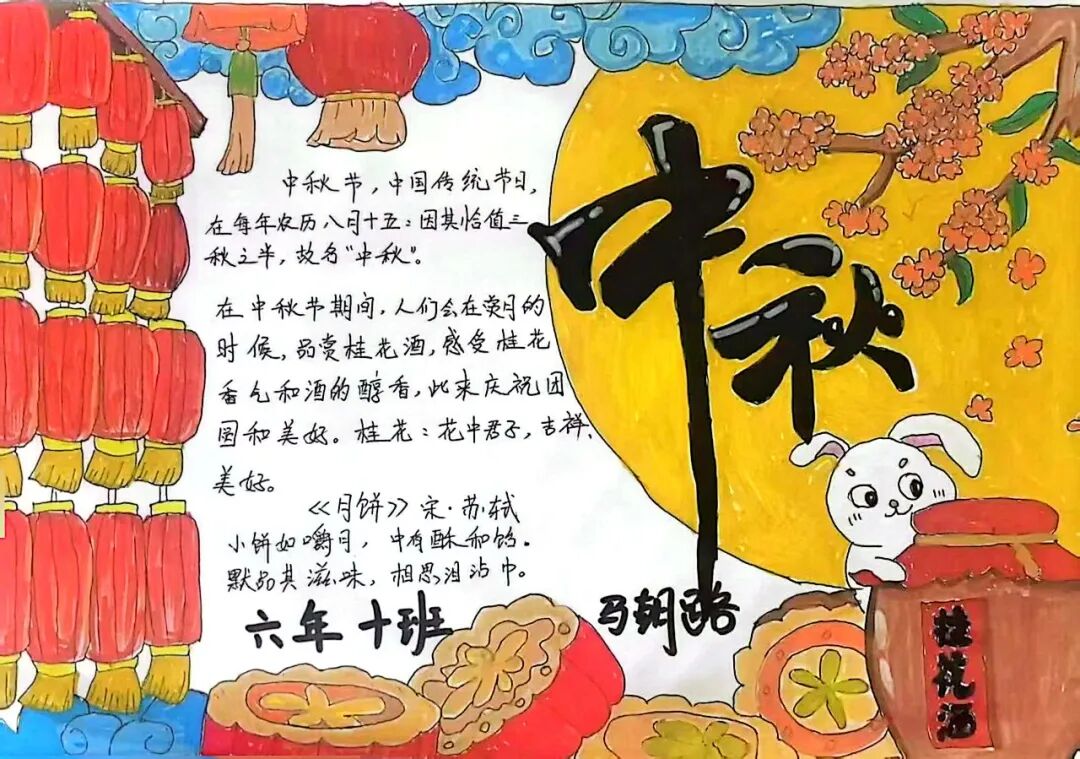 中秋
中秋节，中国传统节日，
在每年农历八月十五：因其恰值三
秋之半，故名“中秋”。
在中秋节期间，人们会在赏月的
时候，品赏桂花酒，感受桂花
香气和酒的醇香，此来庆祝团
圆和美好。桂花：花中君子，吉祥、
美好。
《月饼》宋·苏轼
小饼如嚼月，中有酥和馅。
默品其滋味，相思泪沾巾。
六年十班
马朝酩
桂花酒